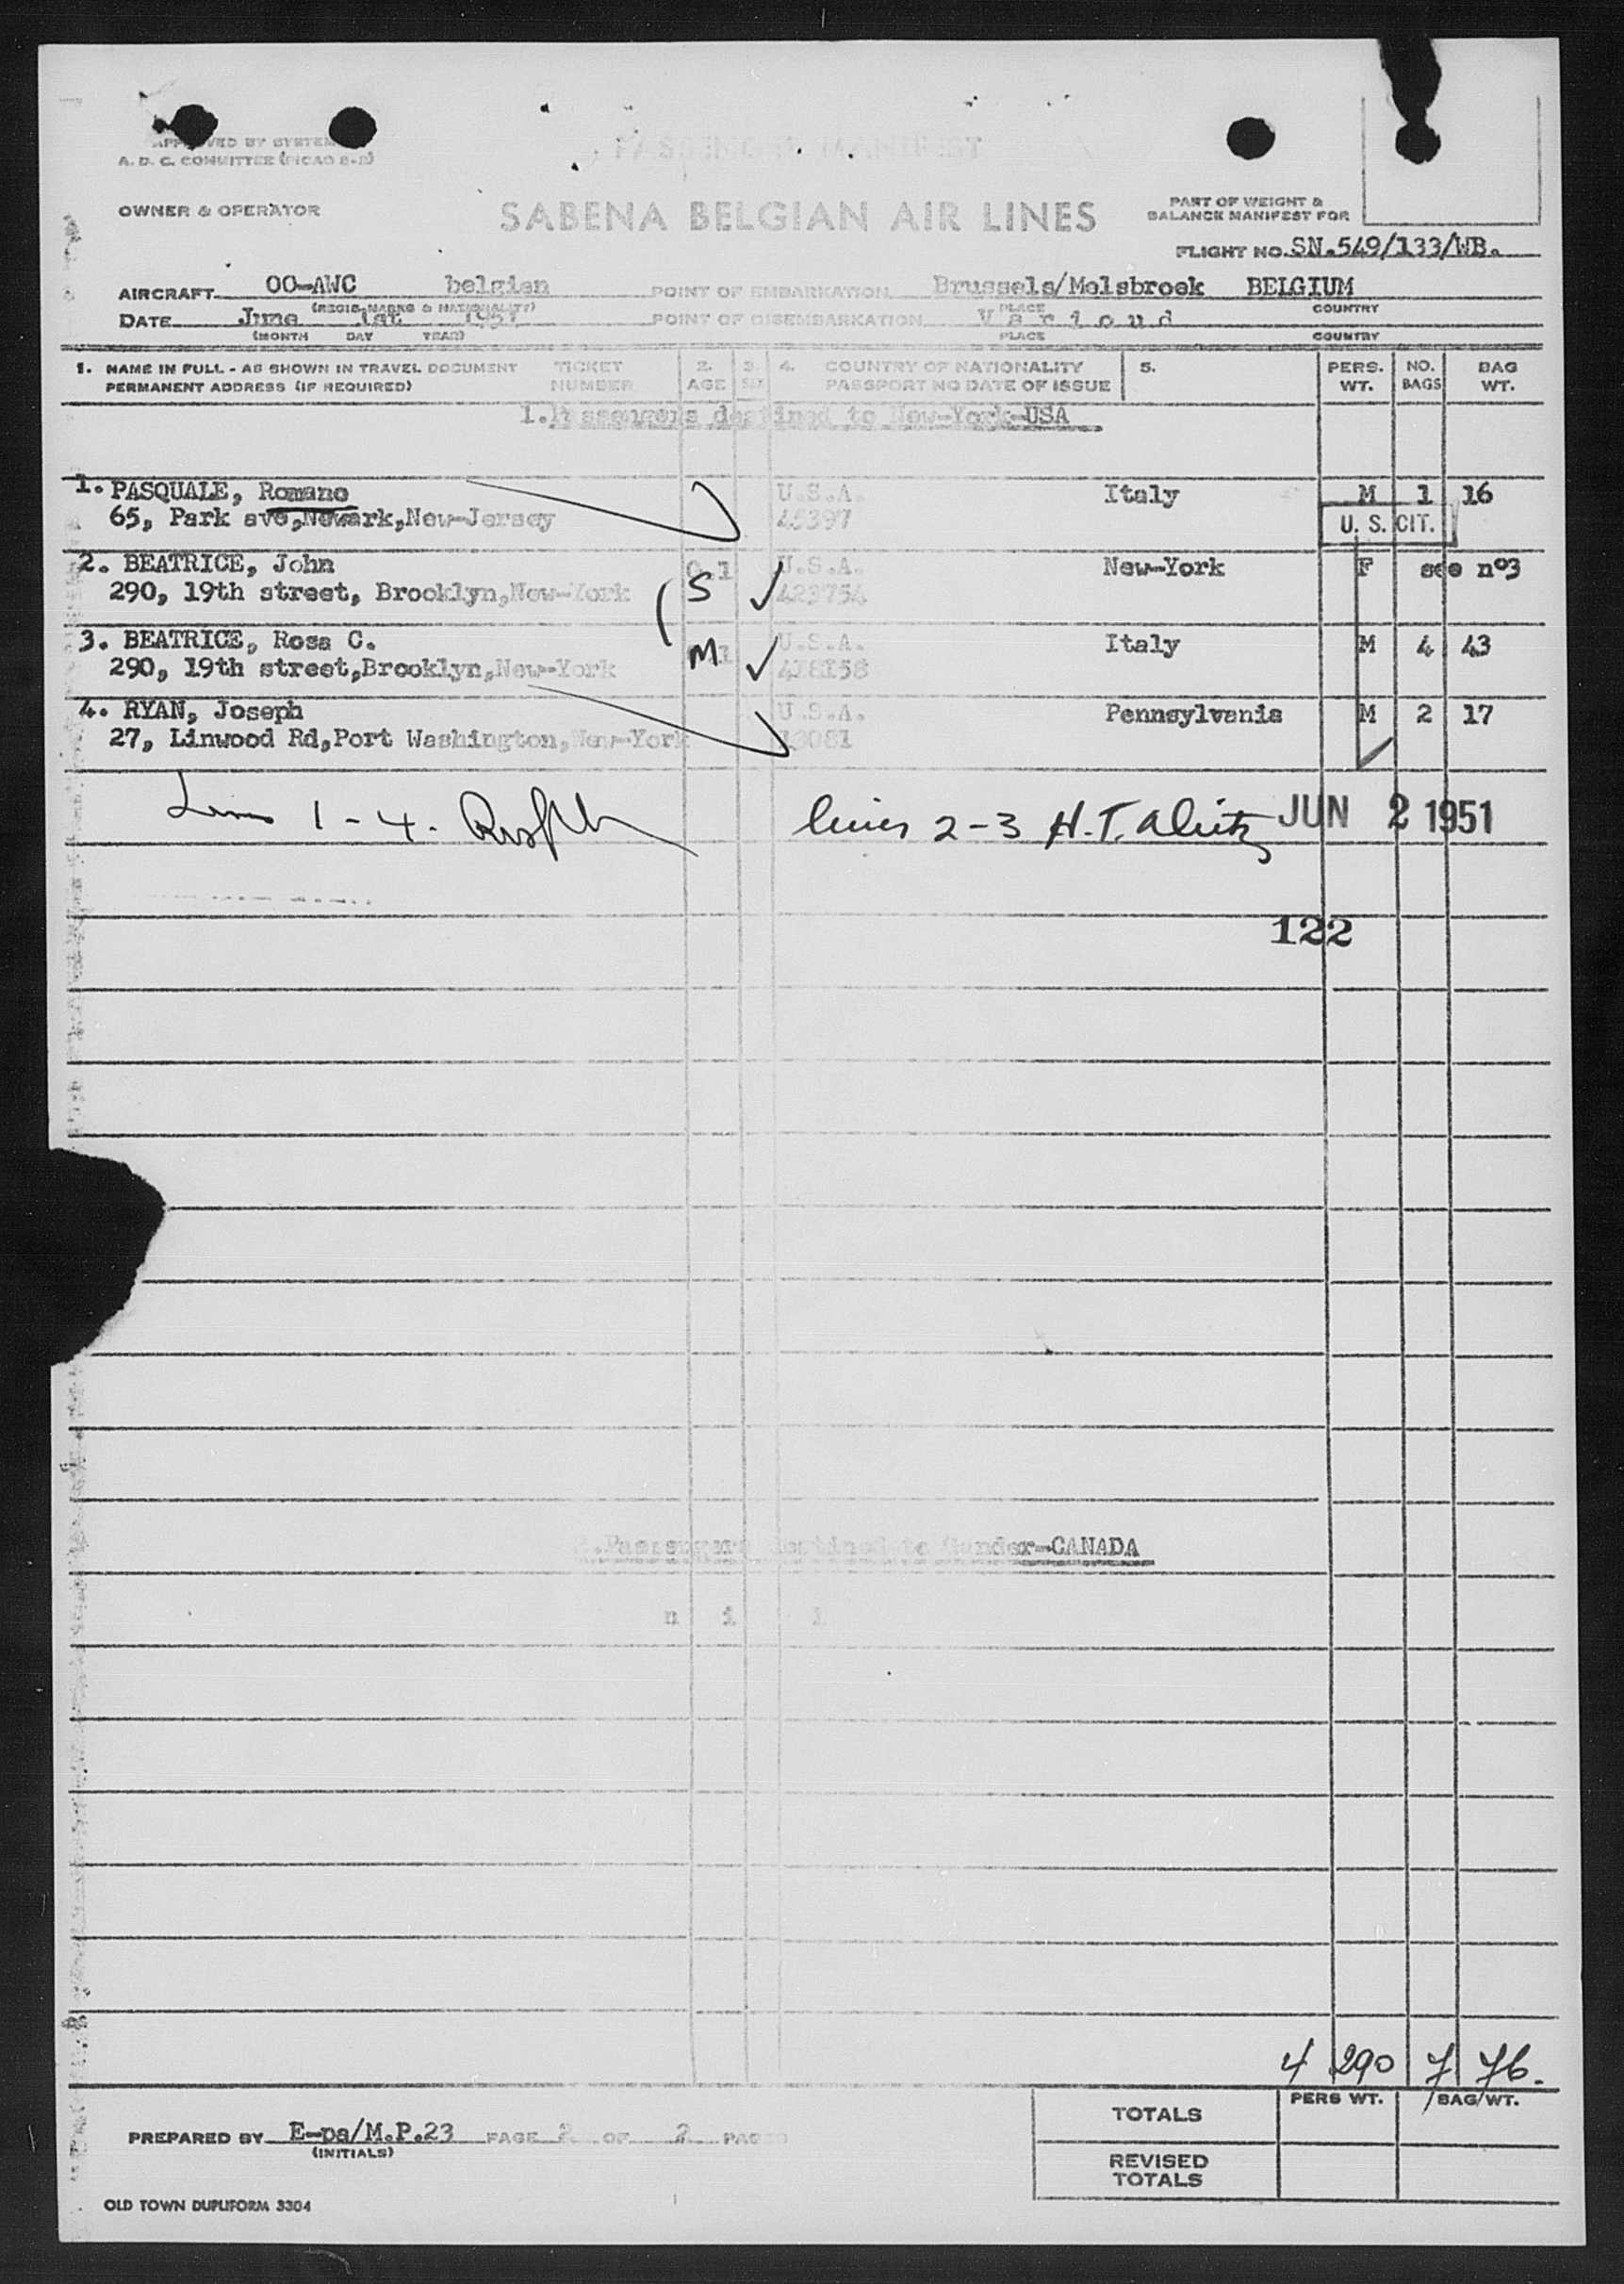 APPROVED BY SYSTEM
A. D. C. COMMITTEE (PICAO 8-2)
PASSENGER MANIFEST
OWNER & OPERATOR
SABENA BELGIAN AIR LINES
PART OF WEIGHT &
BALANCE MANIFEST FOR
FLIGHT NO. SN.549/133/WB.
AIRCRAFT OO-AWC belgian POINT OF EMBARKATION Brussels/Melsbroek BELGIUM
(REGIS. MARKS & NATIONALITY) PLACE COUNTRY
DATE June 1st 1951 POINT OF DISEMBARKATION V a r i o u d
(MONTH DAY YEAR) PLACE COUNTRY
1. NAME IN FULL - AS SHOWN IN TRAVEL DOCUMENT TICKET 2. 3. 4. COUNTRY OF NATIONALITY 5. PERS. NO. BAG
PERMANENT ADDRESS (IF REQUIRED) NUMBER AGE SEX PASSPORT NO DATE OF ISSUE WT. BAGS WT.
1.Passengers destined to New-York-USA
1. PASQUALE, Romano U.S.A. Italy M 1 16
65, Park ave,Newark,New-Jersey 45397 U. S. CIT.
2. BEATRICE, John U.S.A. New-York F see n°3
290, 19th street, Brooklyn,New-York S 423754
3. BEATRICE, Rosa C. U.S.A. Italy M 4 43
290, 19th street,Brooklyn,New-York M 418158
4. RYAN, Joseph U.S.A. Pennsylvania M 2 17
27, Linwood Rd,Port Washington,New-York 13081
Lines 1-4. lines 2-3 H.T. JUN 2 1951
122
2.Passengers destined to Gander-CANADA
n i l
4 290 7 76.
TOTALS PERS WT. BAG WT.
PREPARED BY E-pa/M.P.23 PAGE 2 OF 2 PAGES
(INITIALS)
REVISED
TOTALS
OLD TOWN DUPLIFORM 3304